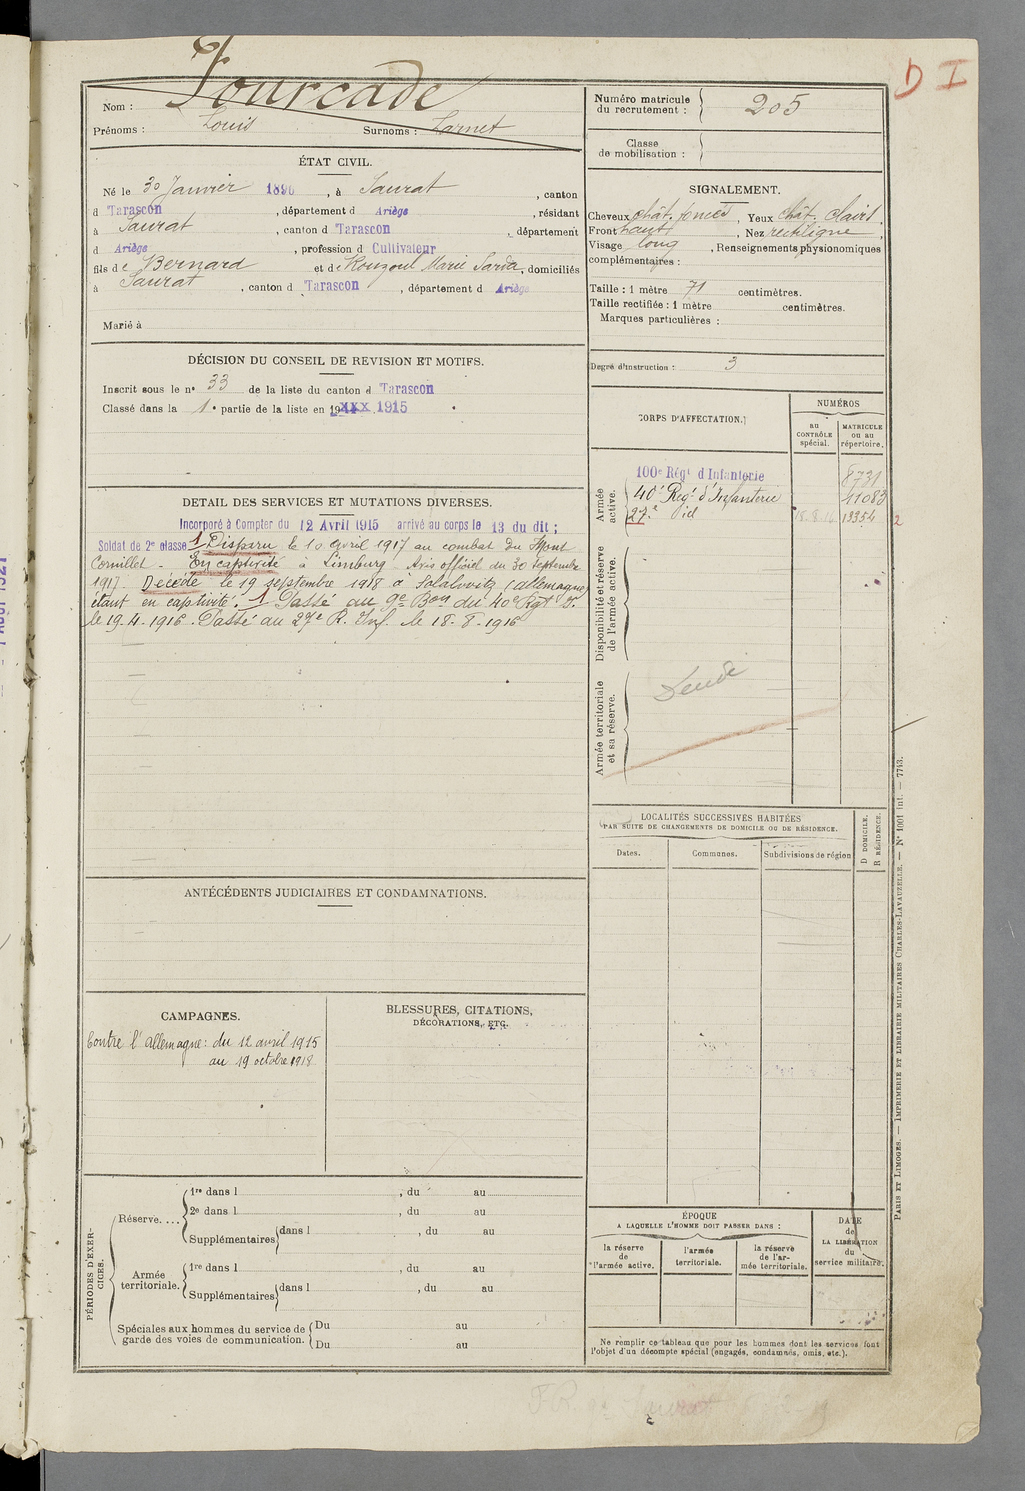 D I
Nom : Fourcade
Prénoms : Louis Surnoms :
Numéro matricule du recrutement : 205
Classe de mobilisation :
ÉTAT CIVIL.
Né le 30 Janvier 1896, à Saurat, canton
d Tarascon, département d Ariège, résidant
à Saurat, canton d Tarascon, département
d Ariège, profession d Cultivateur
fils de Bernard et de Rouzoul Marie Sarda, domiciliés
à Saurat, canton d Tarascon, département d Ariège
Marié à
SIGNALEMENT.
Cheveux chât. foncés, Yeux chât. clairs.
Front haut, Nez rectiligne,
Visage long, Renseignements physionomiques
complémentaires :
Taille : 1 mètre 71 centimètres.
Taille rectifiée : 1 mètre centimètres.
Marques particulières :
Degré d'instruction : 3
DÉCISION DU CONSEIL DE REVISION ET MOTIFS.
Inscrit sous le n° 33 de la liste du canton d Tarascon
Classé dans la 1e partie de la liste en 19xxx 1915
DETAIL DES SERVICES ET MUTATIONS DIVERSES.
Incorporé à Compter du 12 Avril 1915 arrivé au corps le 13 du dit ;
Soldat de 2e classe 1 Disparu le 10 avril 1917 au combat du Mont
Cornillet - En captivité à Limburg Avis officiel du 30 septembre
1917. Décédé le 19 septembre 1918 à (allemagne)
étant en captivité. 1 Passé au 9e Bon du 40e Rgt I.
le 19.4.1916. Passé au 27e R. Inf. le 18-8-1916
CORPS D'AFFECTATION.
NUMÉROS
au CONTRÔLE spécial.
MATRICULE ou au répertoire.
Armée active.
100e Régt d'Infanterie 8731
40e Regt d'Infanterie 11083
27e d 18.8.16 13354 2
Disponibilité et réserve de l'armée active.
Armée territoriale et sa réserve.
LOCALITÉS SUCCESSIVES HABITÉES
PAR SUITE DE CHANGEMENTS DE DOMICILE OU DE RÉSIDENCE.
Dates. Communes. Subdivisions de région
D DOMICILE.
R RÉSIDENCE.
ANTÉCÉDENTS JUDICIAIRES ET CONDAMNATIONS.
CAMPAGNES.
Contre l'Allemagne : du 12 avril 1915
au 19 octobre 1918
BLESSURES, CITATIONS,
DÉCORATIONS, ETC.
PÉRIODES D'EXERCICES.
Réserve....
1re dans l , du au
2e dans l , du au
Supplémentaires dans l , du au
Armée territoriale.
1re dans l , du au
Supplémentaires dans l , du au
Spéciales aux hommes du service de
garde des voies de communication.
Du au
Du au
ÉPOQUE
A LAQUELLE L'HOMME DOIT PASSER DANS :
la réserve de l'armée active.
l'armée territoriale.
la réserve de l'armée territoriale.
DATE de LA LIBÉRATION du service militaire.
Ne remplir ce tableau que pour les hommes dont les services font
l'objet d'un décompte spécial (engagés, condamnés, omis, etc.).
PARIS ET LIMOGES. — IMPRIMERIE ET LIBRAIRIE MILITAIRES CHARLES-LAVAUZELLE. — N° 1001 int. — 7743.